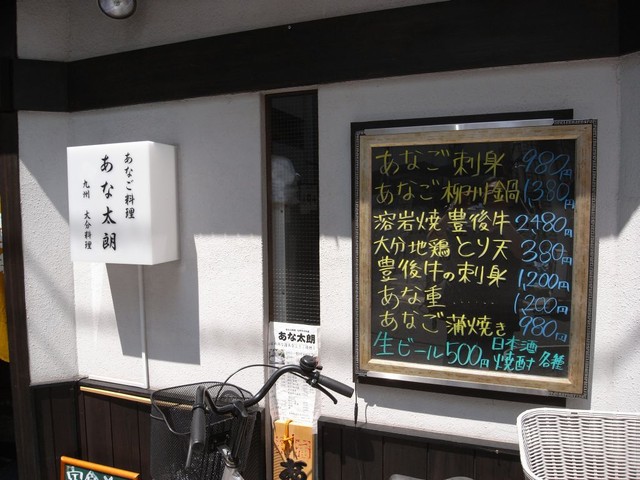 あなご料理
あな太朗
九州 大分料理
あなご刺身 980円
あなご柳川鍋 1380円
溶岩焼 豊後牛 2480円
大分地鶏とり天 380円
豊後牛の刺身 1,200円
あな重...... 1,200円
あなご蒲焼き 980円
生ビール500円 日本酒 焼酎 各種
あな太朗